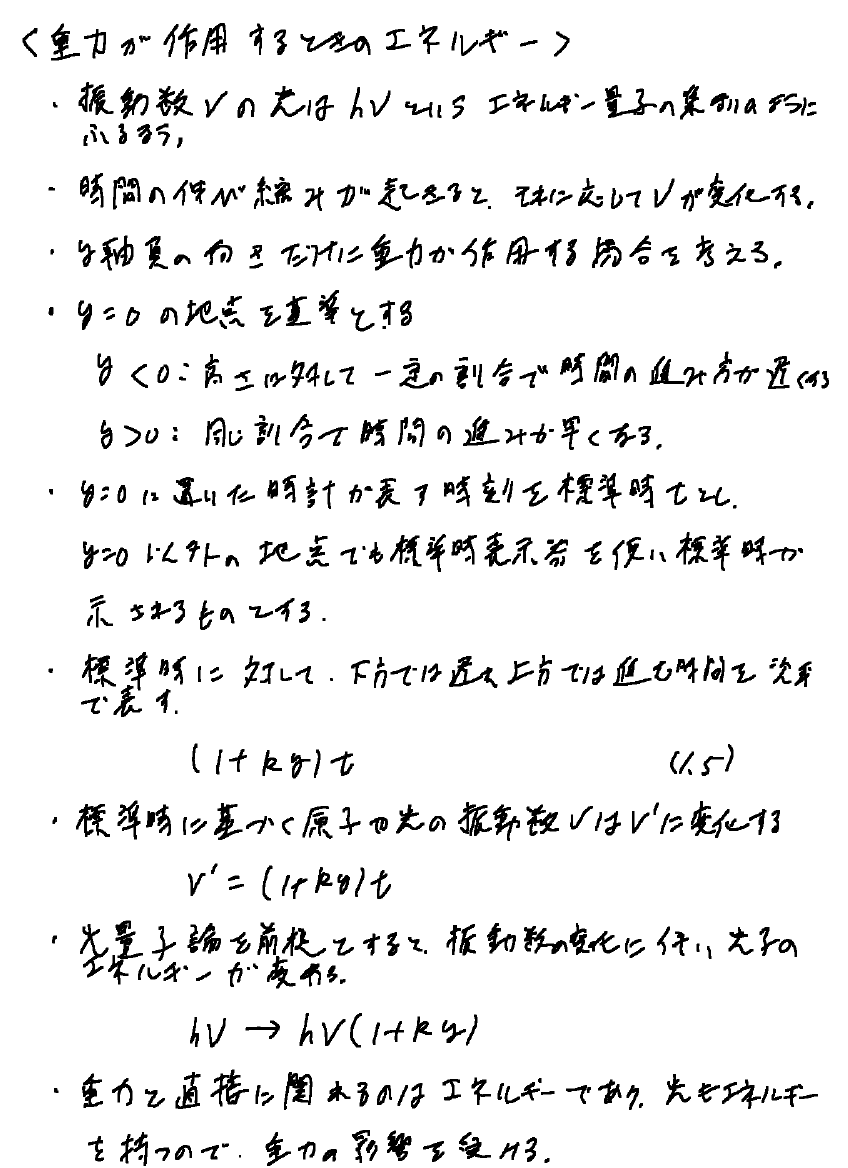 <重力が作用するときのエネルギー>
・振動数νの光はhνというエネルギー量子の集まりのように
ふるまう。
・時間の伸び縮みが起きると、それに応じてνが変化する。
・y軸負の向きだけに重力が作用する場合を考える。
・y=0の地点を基準とする
y<0：高さに対して一定の割合で時間の進み方が遅くなる
y>0：同じ割合で時間の進みが早くなる。
・y=0に置いた時計が表す時刻を標準時tとし、
y=0以外の地点でも標準時表示器を使い標準時が
示されるものとする.
・標準時に対して、下方では遅れ上方では進む時間を次式
で表す.
(1+ky)t (1.5)
・標準時に基づく原子や光の振動数νはν'に変化する
ν'=(1+ky)t
・光量子論を前提とすると、振動数の変化に伴い光子の
エネルギーが変わる.
hν→hν(1+ky)
・重力と直接に関わるのはエネルギーであり、光もエネルギー
を持つので、重力の影響を受ける.